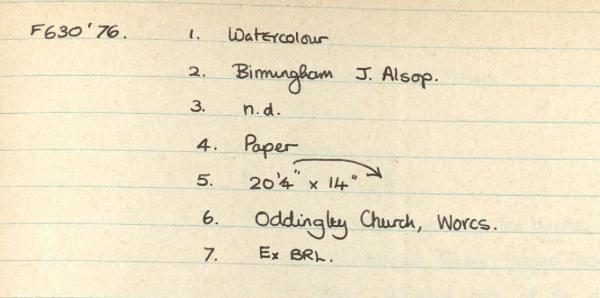 F630'76. 1. Watercolour
2. Birmingham J. Alsop.
3. n.d.
4. Paper
5. 20¼" x 14"
6. Oddingley Church, Worcs.
7. Ex BRL.